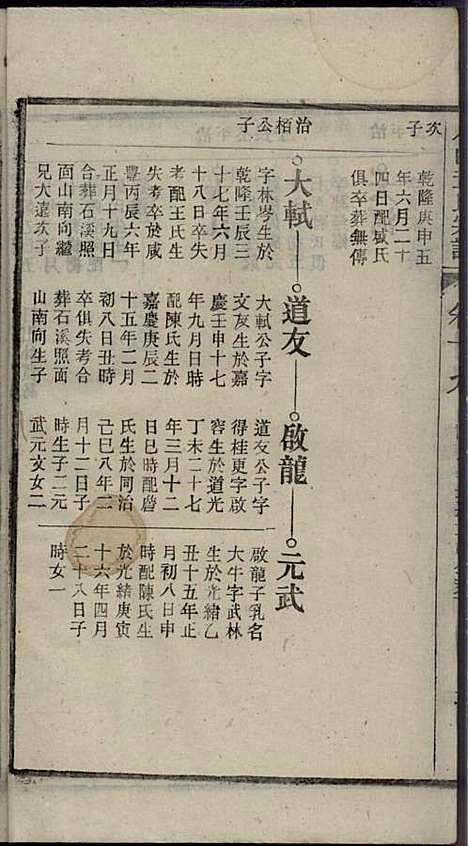 次子
乾隆庚申五
年六月二十
四日配戚氏
俱卒葬無傳
治栢公子
大軾
道友
啟龍
元武
字林岑生於
乾隆壬辰三
十七年六月
十八日卒失
考配王氏生
失考卒於咸
豐丙辰六年
正月十九日
合葬石溪照
面山南向繼
兄大遠次子
大軾公子字
文友生於嘉
慶壬申十七
年九月日時
配陳氏生於
嘉慶庚辰二
十五年二月
初八日丑時
卒俱失考合
葬石溪照面
山南向生子
道友公子字
得桂更字啟
容生於道光
丁未二十七
年三月十二
日巳時配詹
氏生於同治
己巳八年二
月十二日子
時生子二元
武元炆女二
啟龍子乳名
大牛字武林
生於光緒乙
丑十五年正
月初八日申
時配陳氏生
於光緒庚寅
十六年四月
二十八日子
時女一